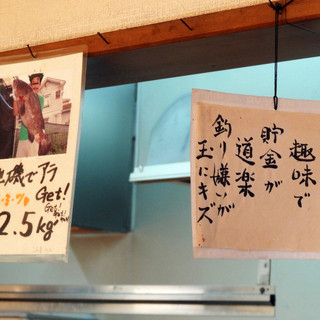 趣味で
貯金が
道楽
釣り嫌が
玉にキズ
磯でアラ
Get!
2.5kg